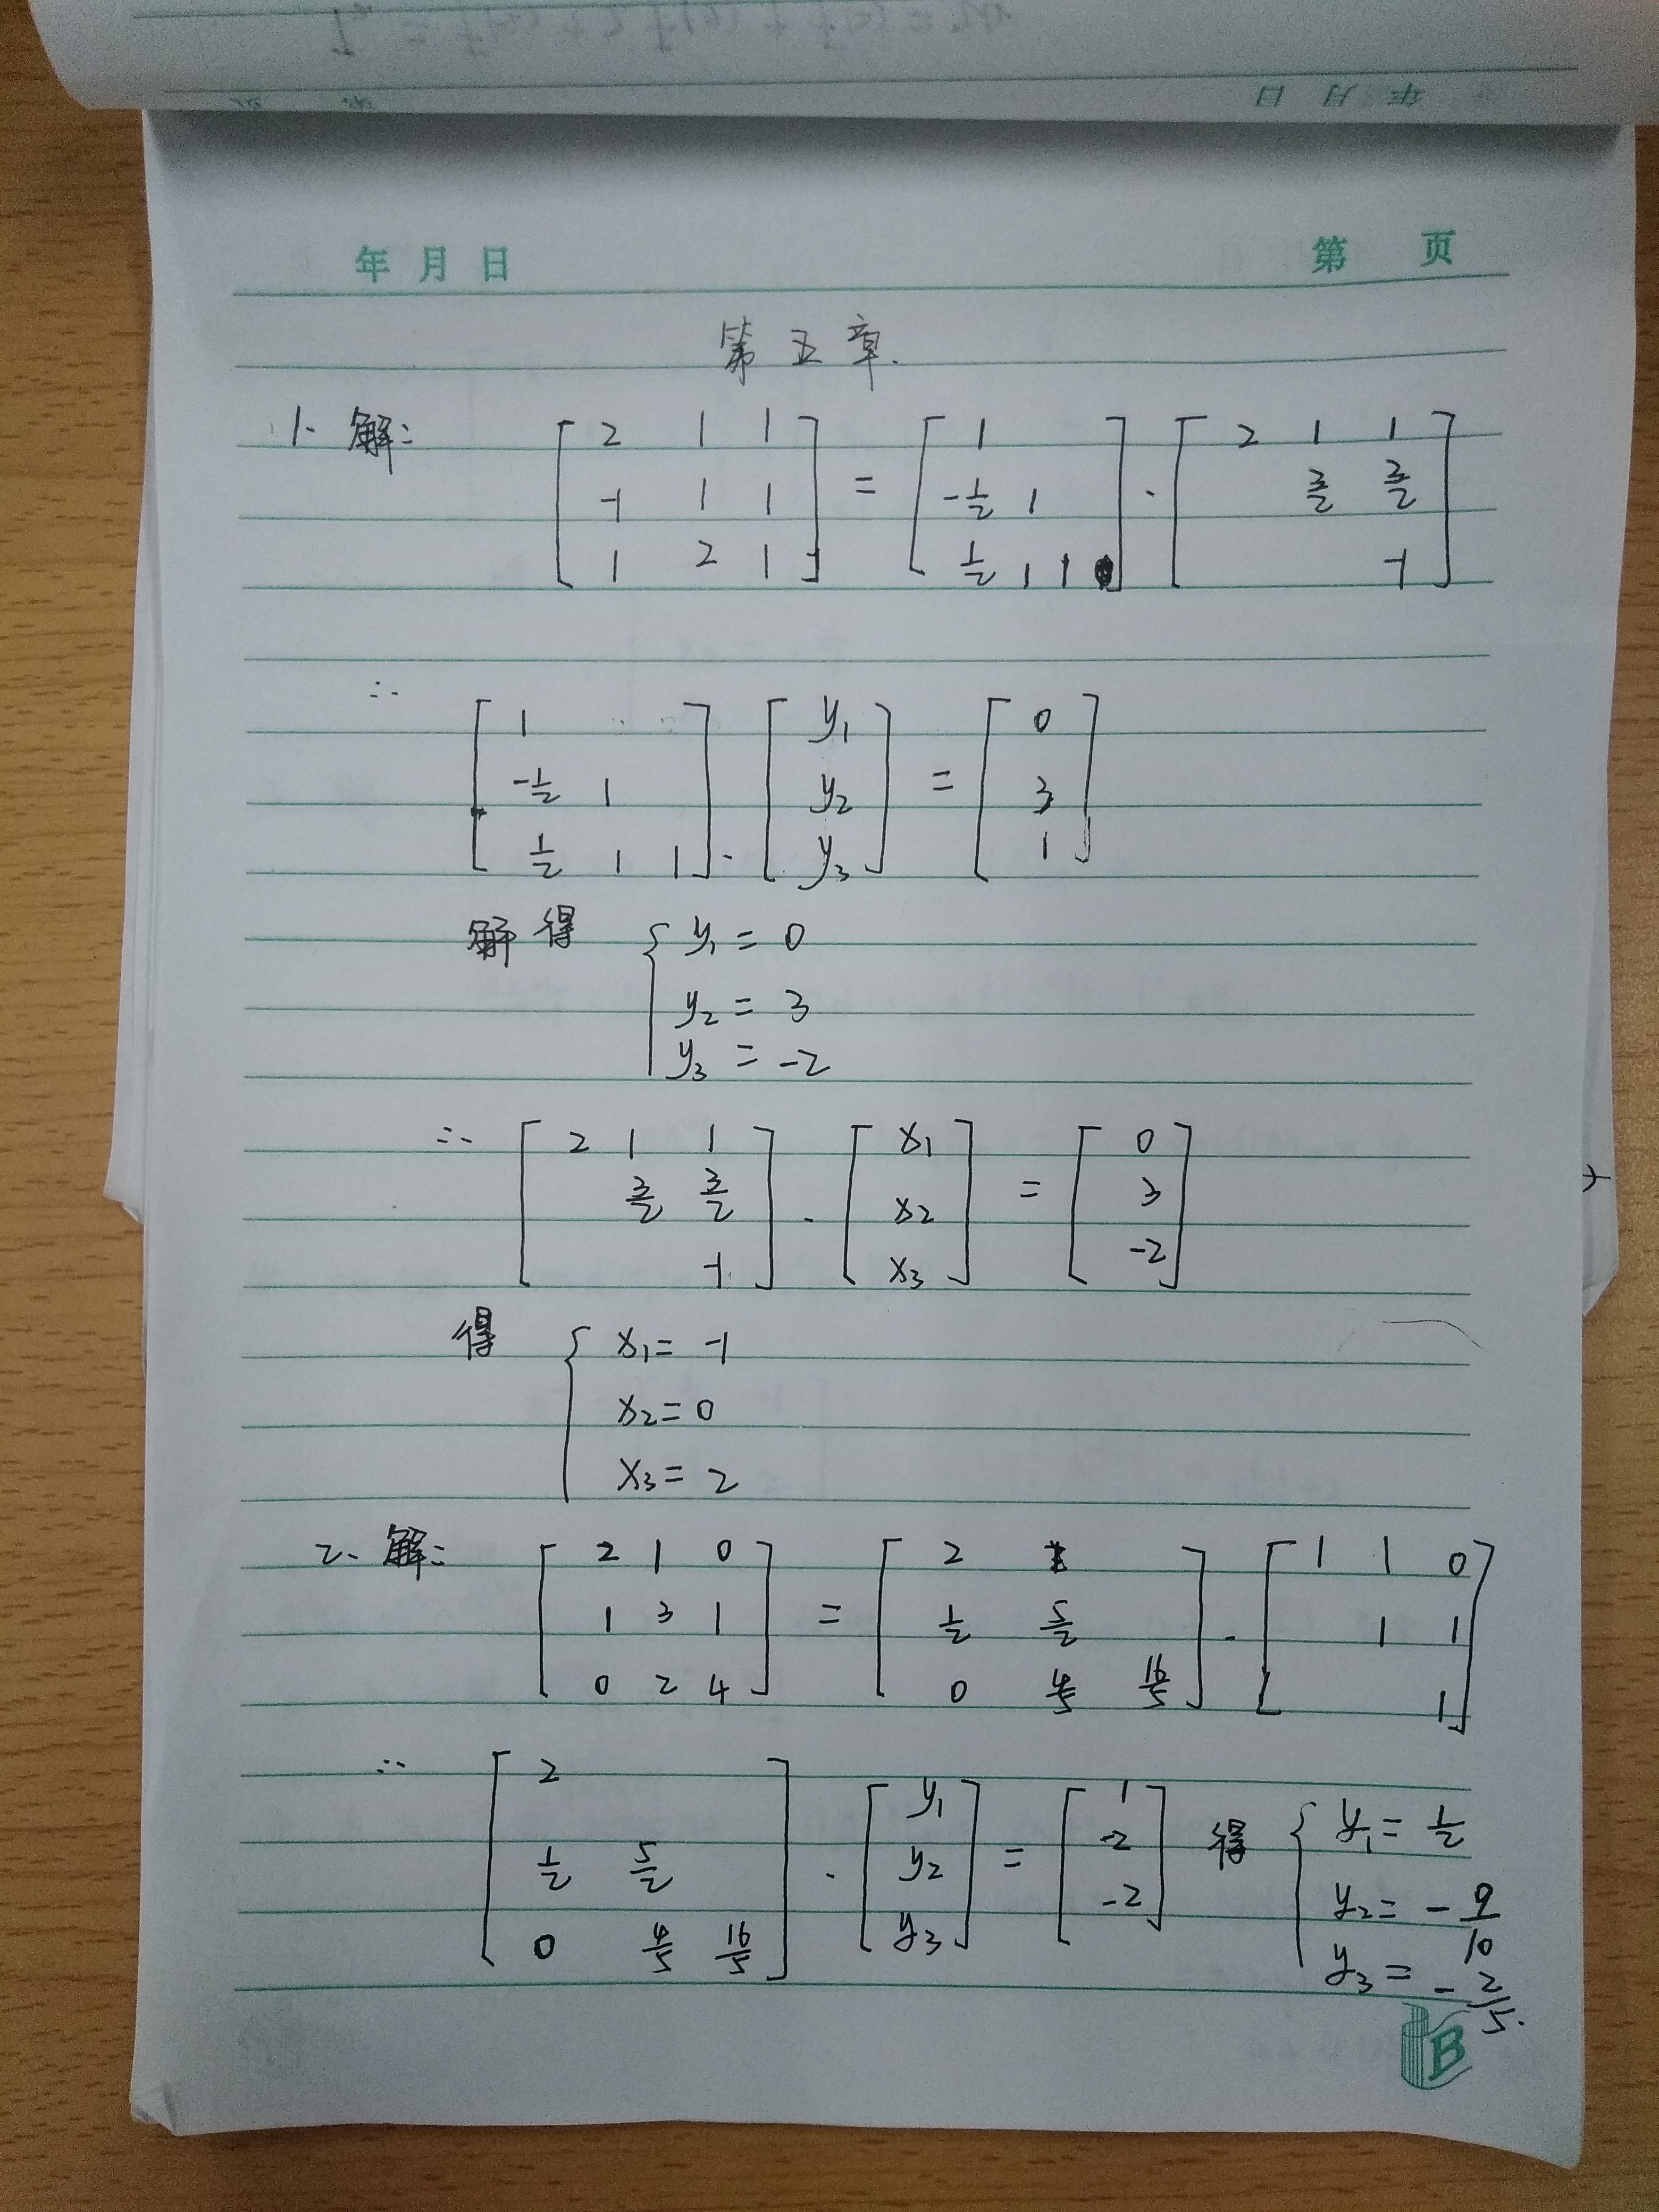 年 月 日 第 页
第五章.
1. 解: [ 2 1 1 ; -1 1 1 ; 1 2 1 ] = [ 1 ; -1/2 1 ; 1/2 1 1 ] · [ 2 1 1 ; 3/2 3/2 ; -1 ]
∴ [ 1 ; -1/2 1 ; 1/2 1 1 ] · [ y₁ ; y₂ ; y₃ ] = [ 0 ; 3 ; 1 ]
解得 { y₁ = 0
y₂ = 3
y₃ = -2
∴ [ 2 1 1 ; 3/2 3/2 ; -1 ] · [ x₁ ; x₂ ; x₃ ] = [ 0 ; 3 ; -2 ]
得 { x₁ = -1
x₂ = 0
x₃ = 2
2. 解: [ 2 1 0 ; 1 3 1 ; 0 2 4 ] = [ 2 ; 1/2 5/2 ; 0 4/5 16/5 ] · [ 1 1 0 ; 1 1 ; 1 ]
∴ [ 2 ; 1/2 5/2 ; 0 4/5 16/5 ] · [ y₁ ; y₂ ; y₃ ] = [ 1 ; -2 ; -2 ] 得 { y₁ = 1/2
y₂ = -9/10
y₃ = -2/5.
B